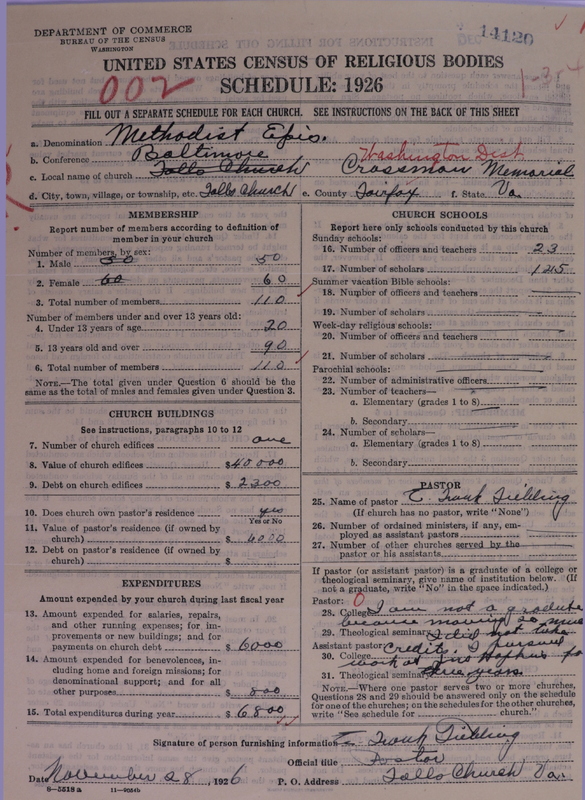 DEPARTMENT OF COMMERCE
BUREAU OF THE CENSUS
WASHINGTON
14120
UNITED STATES CENSUS OF RELIGIOUS BODIES
002
SCHEDULE: 1926
1-35-4
FILL OUT A SEPARATE SCHEDULE FOR EACH CHURCH. SEE INSTRUCTIONS ON THE BACK OF THIS SHEET
a. Denomination Methodist Epis.
b. Conference Baltimore Washington Dist
c. Local name of church Falls Church Crossman Memorial
d. City, town, village, or township, etc. Falls Church e. County Fairfax f. State Va.
MEMBERSHIP
Report number of members according to definition of
member in your church
Number of members, by sex:
1. Male 50 50
2. Female 60 60
3. Total number of members 110
Number of members under and over 13 years old:
4. Under 13 years of age 20
5. 13 years old and over 90
6. Total number of members 110
NOTE.—The total given under Question 6 should be the
same as the total of males and females given under Question 3.
CHURCH BUILDINGS
See instructions, paragraphs 10 to 12
7. Number of church edifices one
8. Value of church edifices $40000
9. Debt on church edifices $2300
10. Does church own pastor's residence yes
Yes or No
11. Value of pastor's residence (if owned by
church) $6000
12. Debt on pastor's residence (if owned by
church) $
EXPENDITURES
Amount expended by your church during last fiscal year
13. Amount expended for salaries, repairs,
and other running expenses; for im-
provements or new buildings; and for
payments on church debt $6000
14. Amount expended for benevolences, in-
cluding home and foreign missions; for
denominational support; and for all
other purposes $800
15. Total expenditures during year $6800
CHURCH SCHOOLS
Report here only schools conducted by this church
Sunday schools:
16. Number of officers and teachers 23
17. Number of scholars 125
Summer vacation Bible schools:
18. Number of officers and teachers
19. Number of scholars
Week-day religious schools:
20. Number of officers and teachers
21. Number of scholars
Parochial schools:
22. Number of administrative officers
23. Number of teachers—
a. Elementary (grades 1 to 8)
b. Secondary
24. Number of scholars—
a. Elementary (grades 1 to 8)
b. Secondary
PASTOR
25. Name of pastor E. Frank Fielding
(If church has no pastor, write "None")
26. Number of ordained ministers, if any, em-
ployed as assistant pastors
27. Number of other churches served by the
pastor or his assistants
If pastor (or assistant pastor) is a graduate of a college or
theological seminary, give name of institution below. (If
not a graduate, write "No" in the space indicated.)
Pastor: 0
28. College I am not a graduate
because moving so much
29. Theological seminary I did not take
Assistant pastor: credit. I pursued
30. College work at Jno Hopkins for
31. Theological seminary five years.
NOTE.—Where one pastor serves two or more churches,
Questions 28 and 29 should be answered only on the schedule
for one of the churches; on the schedules for the other churches,
write "See schedule for church."
Signature of person furnishing information E. Frank Fielding
Official title Pastor
Date November 28, 1926 P. O. Address Falls Church Va.
8—5518 a